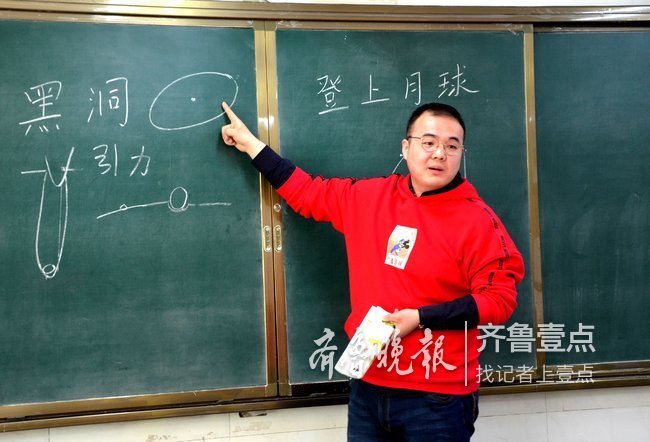 黑洞
登上月球
引力
齐鲁晚报
齐鲁壹点
找记者上壹点